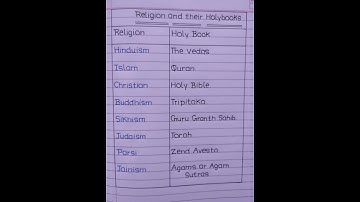 Religion and their Holybooks
Religion Holy Book
Hinduism The Vedas
Islam Quran
Christian Holy Bible
Buddhism Tripitaka
Sikhism Guru Granth Sahib
Judaism Torah
Parsi Zend Avesta
Jainism Agams or Agam
Sutras